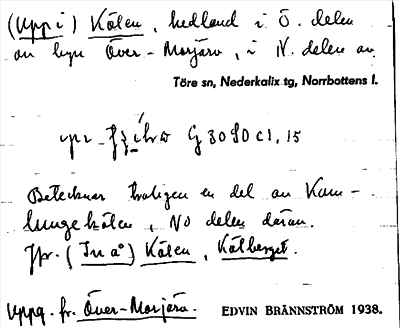 (Uppi) Kölen, hedland i Ö. delen
av byn Över-Morjärv, i N. delen av
Töre sn, Nederkalix tg, Norrbottens l.
G 30 S0 c1, 15
Betecknar troligen en del av Kam-
lungekölen, NO delen därav.
Jfr. (Inå) Kölen, Kölberget.
Uppg. fr. Över-Morjärv. EDVIN BRÄNNSTRÖM 1938.